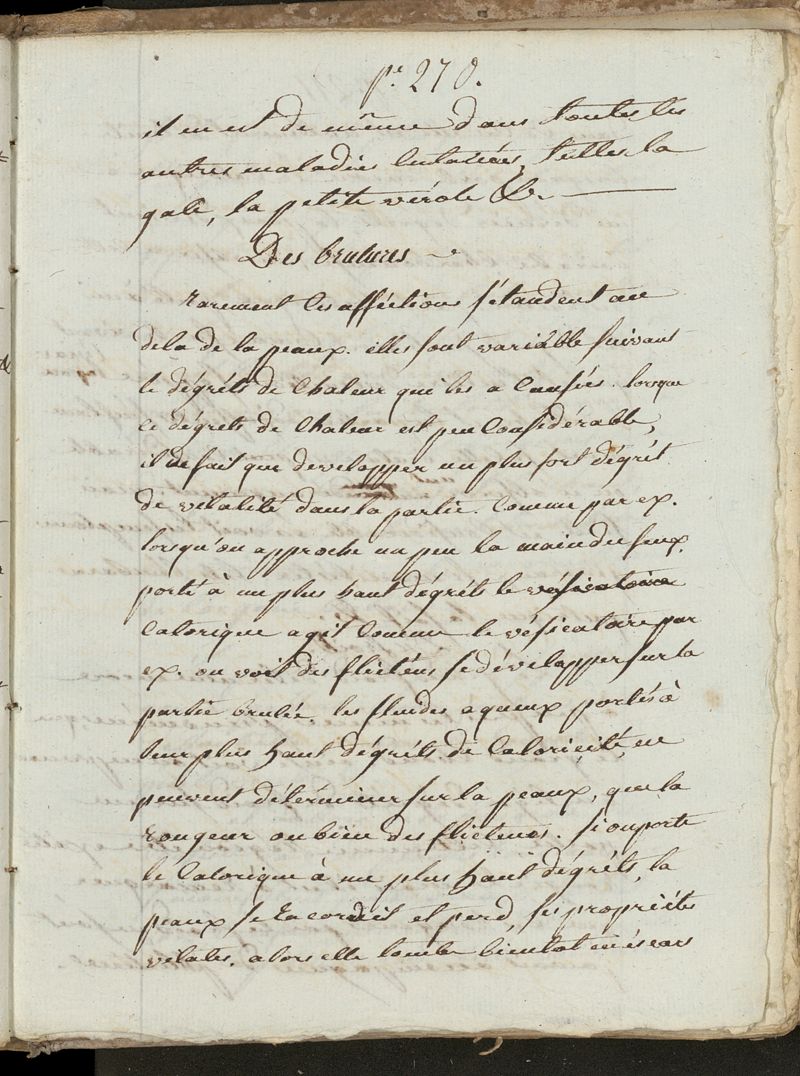 pe. 270.
il en est de même dans toutes les
autres maladies cutanées, telles la
gale, la petite vérole &c.
Des brulures
rarement les afféctions s'étandent au
dela de la peaux. elles sont variable suivant
le dégréts de chaleur qui les a causées. lorsque
ce dégrets de chaleur est peu considérable,
il ne fait que developper un plus fort dégrét
de vitalité dans la partie. Comme par ex.
lorsqu'on approche un peu la main du feux.
porté à un plus haut dégréts le vésicatoire
calorique agit comme le vésicatoire par
ex. on voit des flicténs se dévelapper sur la
partie brulée. les fluides aqueux portés à
leur plus haut dégréts de caloricité, ne
peuvent déterminer sur la peaux, que la
rougeur ou bien des flictenes. si on porte
le calorique à un plus haut dégréts, la
peaux se racordit et perd ses propriétés
vitales. alors elle tombe bientot en escars